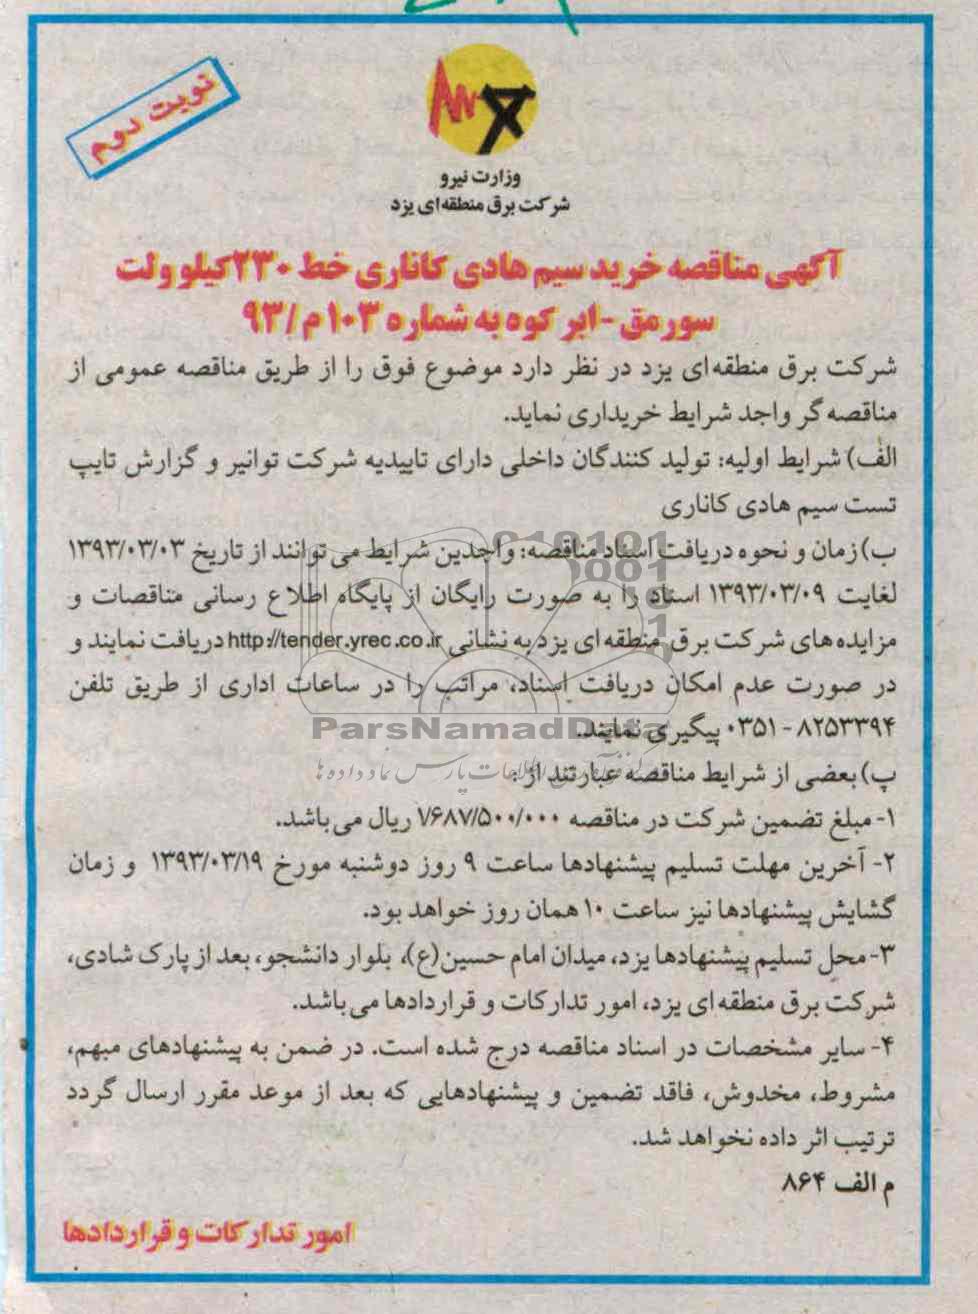 نوبت دوم
وزارت نیرو
شرکت برق منطقه‌ای یزد
آگهی مناقصه خرید سیم هادی کاناری خط ۲۳۰کیلو ولت
سورمق - ابرکوه به شماره ۱۰۳م/۹۳
شرکت برق منطقه‌ای یزد در نظر دارد موضوع فوق را از طریق مناقصه عمومی از
مناقصه گر واجد شرایط خریداری نماید.
الف) شرایط اولیه: تولید کنندگان داخلی دارای تاییدیه شرکت توانیر و گزارش تایپ
تست سیم هادی کاناری
ب) زمان و نحوه دریافت اسناد مناقصه: واجدین شرایط می توانند از تاریخ ۱۳۹۳/۰۳/۰۳
لغایت ۱۳۹۳/۰۳/۰۹ اسناد را به صورت رایگان از پایگاه اطلاع رسانی مناقصات و
مزایده های شرکت برق منطقه ای یزد به نشانی http://tender.yrec.co.ir دریافت نمایند و
در صورت عدم امکان دریافت اسناد، مراتب را در ساعات اداری از طریق تلفن
۸۲۵۳۳۹۴ - ۰۳۵۱ پیگیری نمایند.
ParsNamadData
پ) بعضی از شرایط مناقصه عبارتند از:
۱- مبلغ تضمین شرکت در مناقصه ۱/۶۸۷/۵۰۰/۰۰۰ ریال می باشد.
۲- آخرین مهلت تسلیم پیشنهادها ساعت ۹ روز دوشنبه مورخ ۱۳۹۳/۰۳/۱۹ و زمان
گشایش پیشنهادها نیز ساعت ۱۰ همان روز خواهد بود.
۳- محل تسلیم پیشنهادها یزد، میدان امام حسین(ع)، بلوار دانشجو، بعد از پارک شادی،
شرکت برق منطقه ای یزد، امور تدارکات و قراردادها می باشد.
۴- سایر مشخصات در اسناد مناقصه درج شده است. در ضمن به پیشنهادهای مبهم،
مشروط، مخدوش، فاقد تضمین و پیشنهادهایی که بعد از موعد مقرر ارسال گردد
ترتیب اثر داده نخواهد شد.
م الف ۸۶۴
امور تدارکات و قراردادها